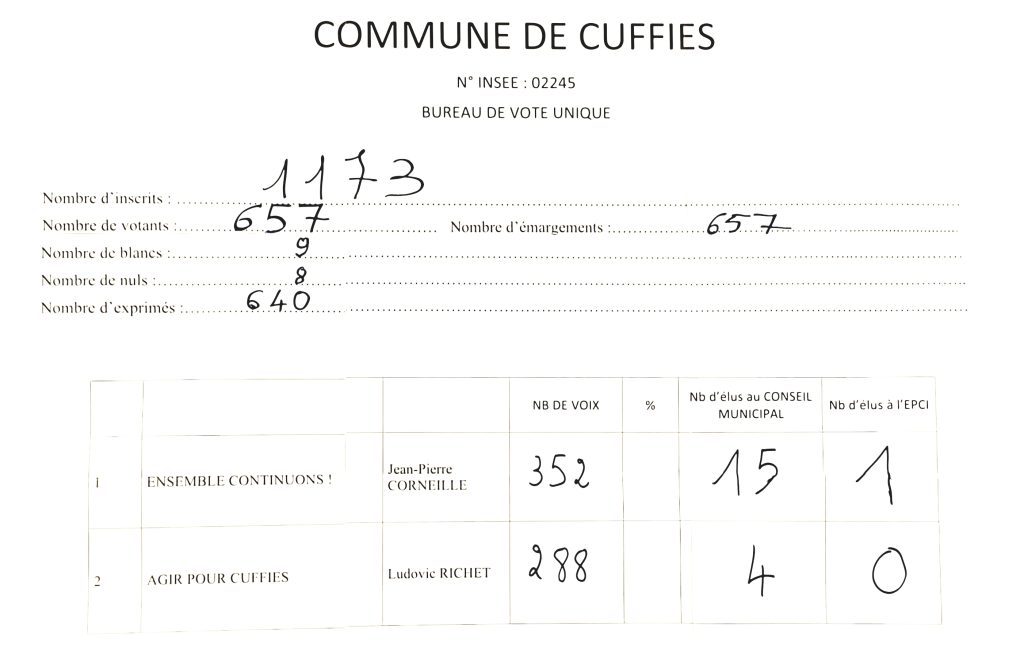 COMMUNE DE CUFFIES
N° INSEE : 02245
BUREAU DE VOTE UNIQUE
Nombre d'inscrits : 1173
Nombre de votants : 657 Nombre d'émargements : 657
Nombre de blancs : 9
Nombre de nuls : 8
Nombre d'exprimés : 640
NB DE VOIX % Nb d'élus au CONSEIL MUNICIPAL Nb d'élus à l'EPCI
1 ENSEMBLE CONTINUONS ! Jean-Pierre CORNEILLE 352 15 1
2 AGIR POUR CUFFIES Ludovic RICHET 288 4 0